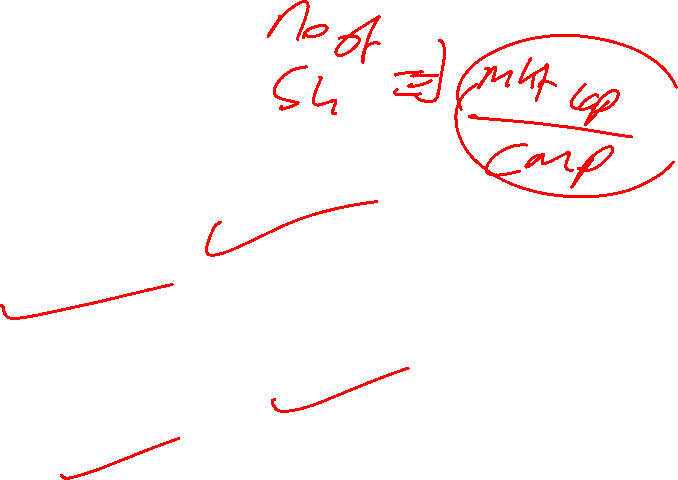 no of
Sh ⇒ Mkt cap
CMP